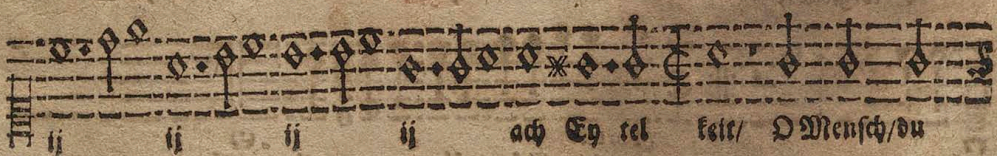 ij ij ij ij ach Ey tel keit/ O Mensch/du